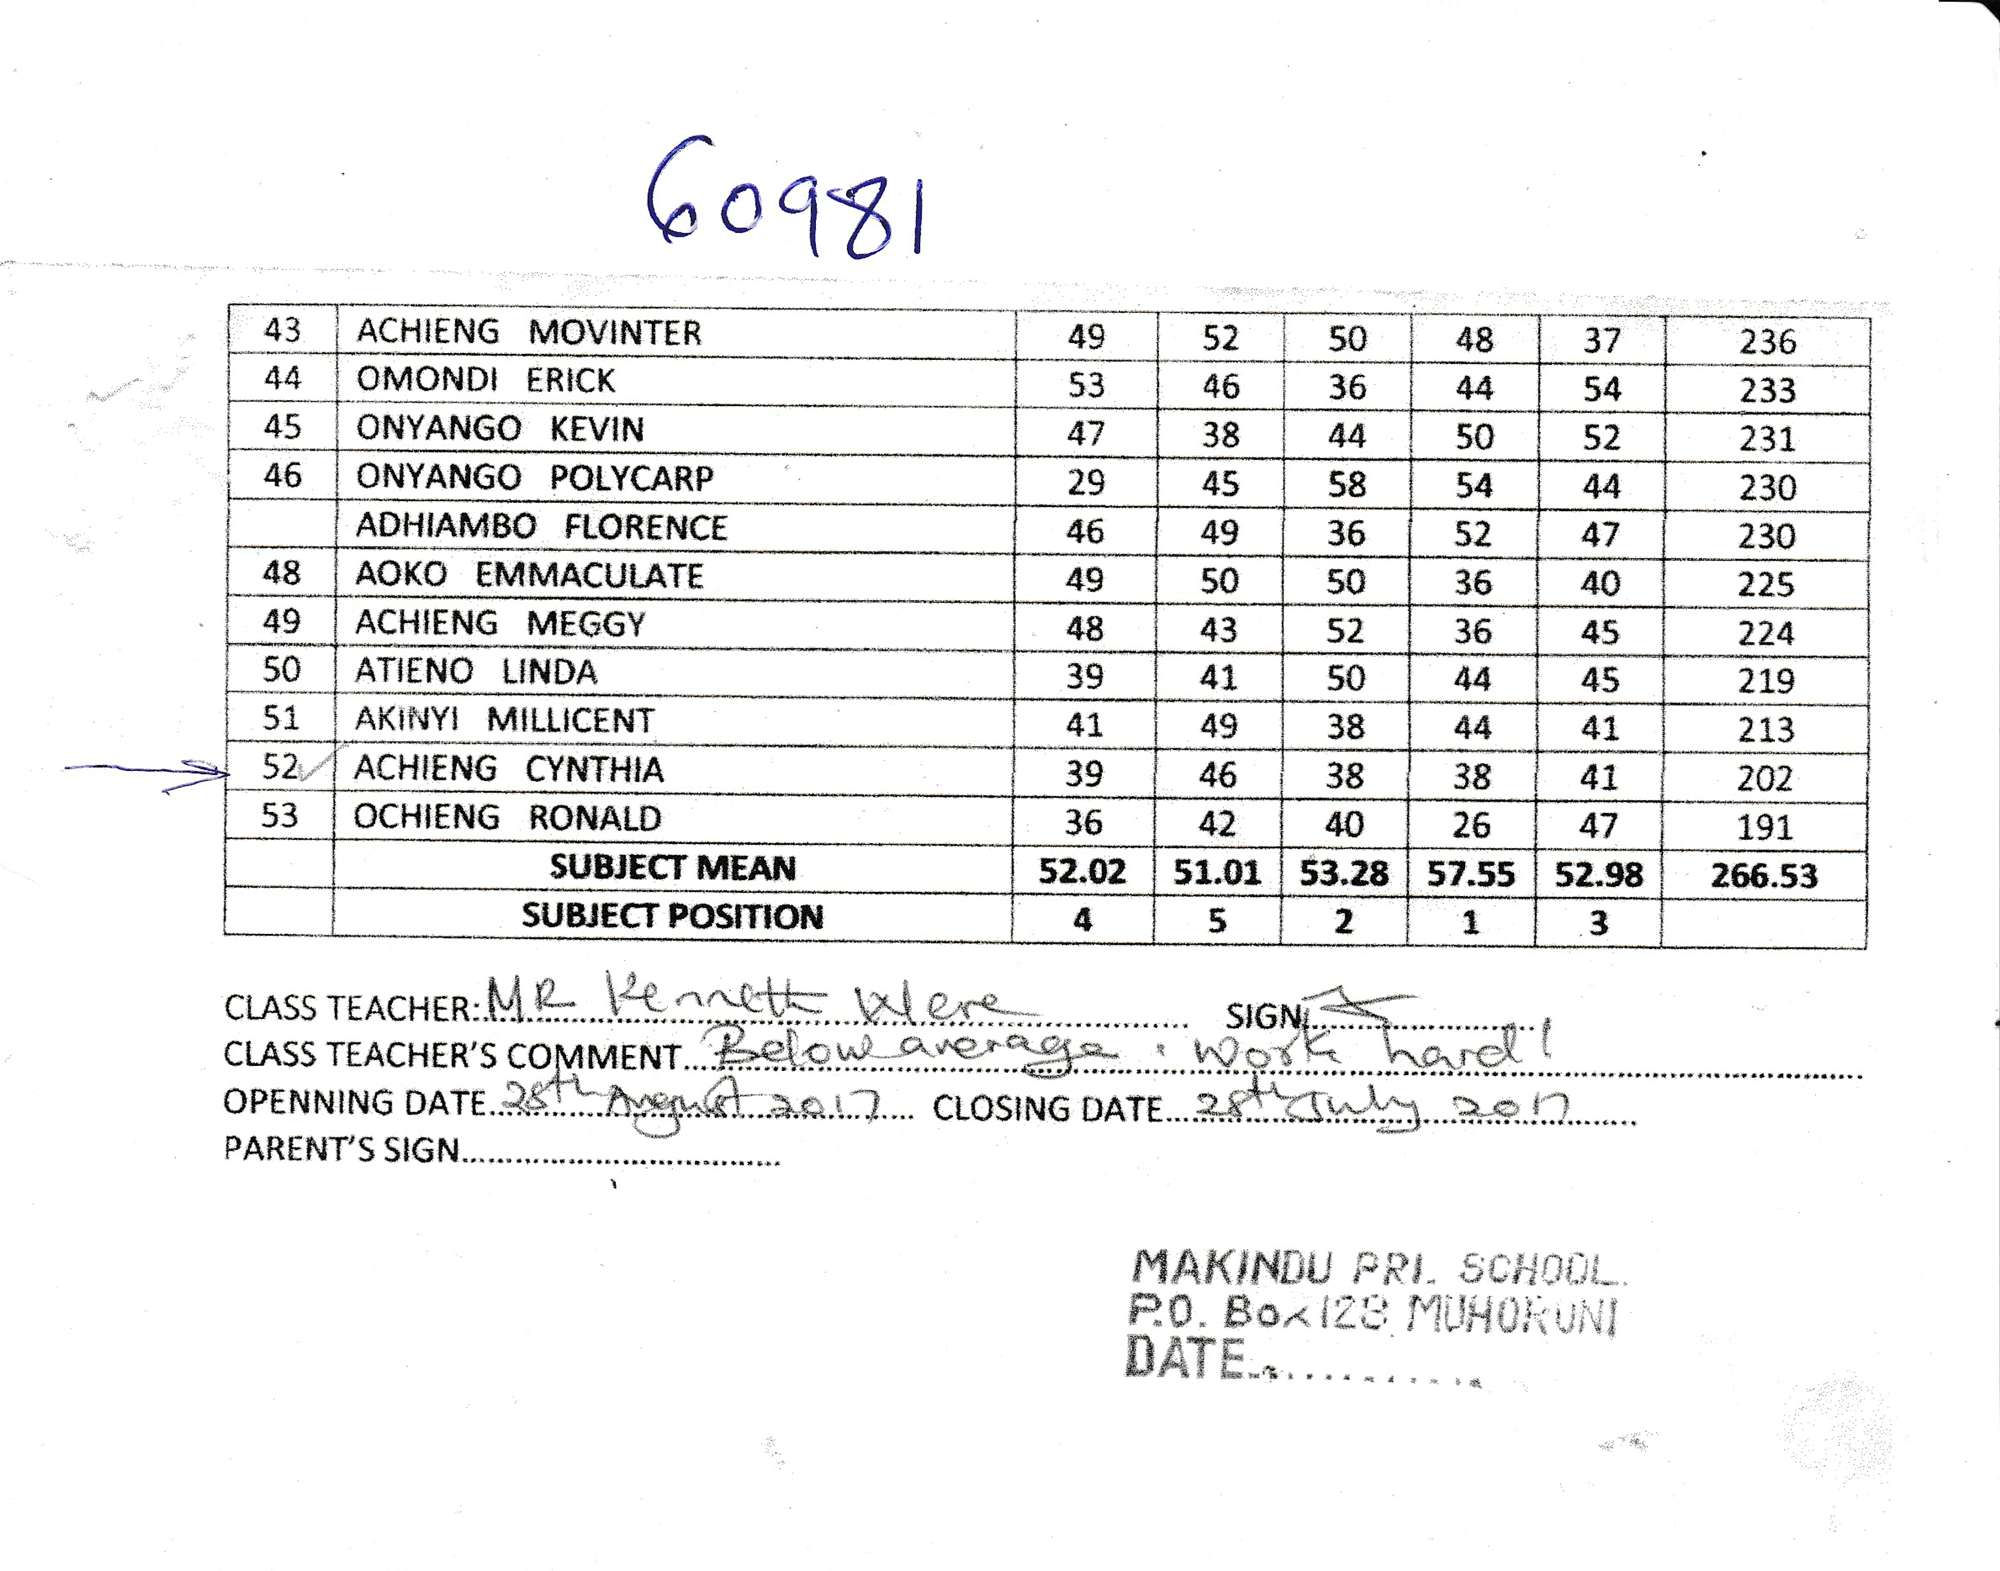 60981
43 ACHIENG MOVINTER 49 52 50 48 37 236
44 OMONDI ERICK 53 46 36 44 54 233
45 ONYANGO KEVIN 47 38 44 50 52 231
46 ONYANGO POLYCARP 29 45 58 54 44 230
ADHIAMBO FLORENCE 46 49 36 52 47 230
48 AOKO EMMACULATE 49 50 50 36 40 225
49 ACHIENG MEGGY 48 43 52 36 45 224
50 ATIENO LINDA 39 41 50 44 45 219
51 AKINYI MILLICENT 41 49 38 44 41 213
52 ACHIENG CYNTHIA 39 46 38 38 41 202
53 OCHIENG RONALD 36 42 40 26 47 191
SUBJECT MEAN 52.02 51.01 53.28 57.55 52.98 266.53
SUBJECT POSITION 4 5 2 1 3
CLASS TEACHER: MR Kenneth Were SIGN
CLASS TEACHER'S COMMENT Below average. Work hard!
OPENNING DATE 28th August 2017 CLOSING DATE 28th July 2017
PARENT'S SIGN
MAKINDU PRI. SCHOOL.
P.O. Box 128 MUHORONI
DATE